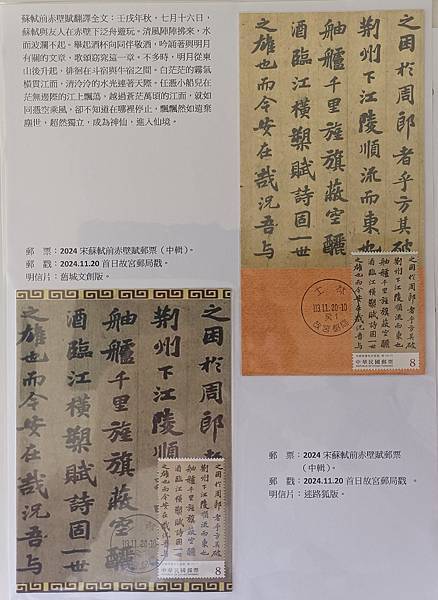 蘇軾前赤壁賦翻譯全文：壬戌年秋，七月十六日，
蘇軾與友人在赤壁下泛舟遊玩。清風陣陣拂來，水
而波瀾不起。舉起酒杯向同伴敬酒，吟誦著與明月
有關的文章，歌頌窈窕這一章。不多時，明月從東
山後升起，徘徊在斗宿與牛宿之間。白茫茫的霧氣
橫貫江面，清泠泠的水光連著天際。任憑小船兒在
茫無邊際的江上飄蕩，越過蒼茫萬頃的江面，就如
同憑空乘風，卻不知道在哪裡停止，飄飄然如遺棄
塵世，超然獨立，成為神仙，進入仙境。
郵　票：2024 宋蘇軾前赤壁賦郵票（中輯）。
郵　戳：2024.11.20 首日故宮郵局戳。
明信片：舊城文創版。
之困於周郎者乎方其破
荊州下江陵順流而東也
舳艫千里旌旗蔽空釃
酒臨江橫槊賦詩固一世
之雄也而今安在哉況吾與
之困於周郎者乎方其破
荊州下江陵順流而東也
舳艫千里旌旗蔽空釃
酒臨江橫槊賦詩固一世
之雄也而今安在哉況吾與
中華民國郵票
8
113.11.20-10
之困於周郎
荊州下江陵順
舳艫千里旌旗蔽空釃
酒臨江橫槊賦詩固一世
之雄也而今安在哉況吾與
之困於周郎者乎方其破
荊州下江陵順流而東也
舳艫千里旌旗蔽空釃
酒臨江橫槊賦詩固一世
之雄也而今安在哉況吾與
中華民國郵票
8
113.11.20-10
郵　票：2024 宋蘇軾前赤壁賦郵票
（中輯）。
郵　戳：2024.11.20 首日故宮郵局戳 。
明信片：迷路狐版。